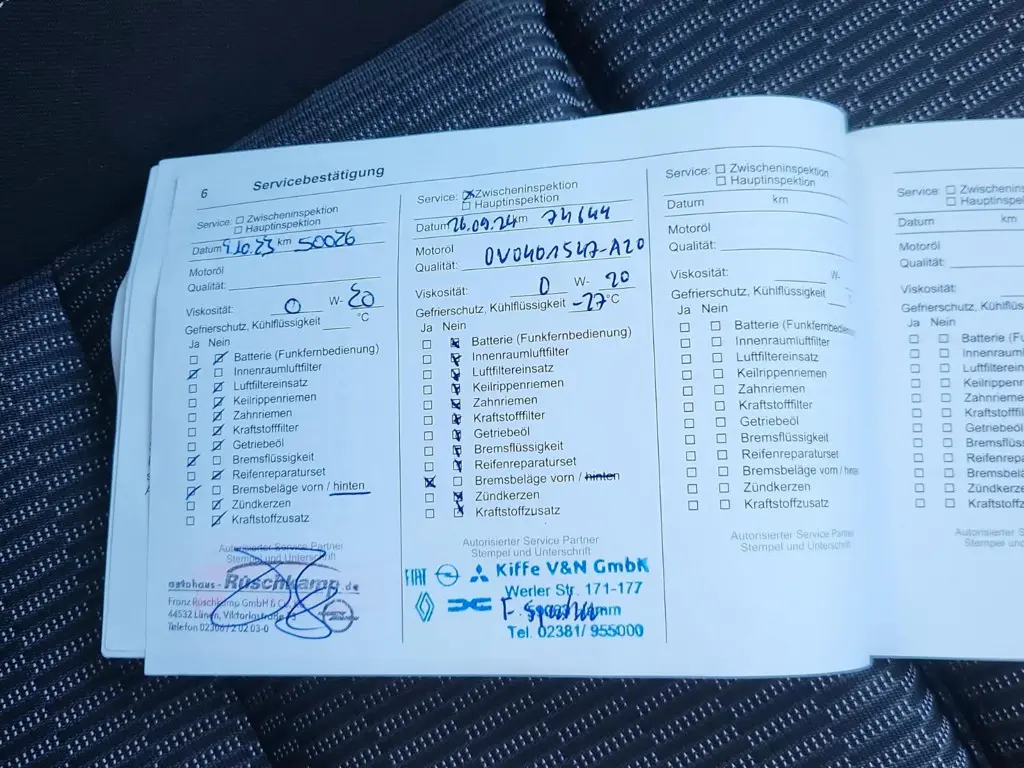 6 Servicebestätigung
Service: Zwischeninspektion
Hauptinspektion
Datum 50026 km
Motoröl
Qualität:
Viskosität: 0 W- 20
Gefrierschutz, Kühlflüssigkeit °C
Ja Nein
Batterie (Funkfernbedienung)
Innenraumluftfilter
Luftfiltereinsatz
Keilrippenriemen
Zahnriemen
Kraftstofffilter
Getriebeöl
Bremsflüssigkeit
Reifenreparaturset
Bremsbeläge vorn / hinten
Zündkerzen
Kraftstoffzusatz
Autorisierter Service Partner
Stempel und Unterschrift
autohaus-Rüschkamp.de
Franz Rüschkamp GmbH & Co.
44532 Lünen, Viktoriastraße
Telefon 02306 / 2 02 03-0
Service: Zwischeninspektion
Hauptinspektion
Datum 26.09.24 km 74644
Motoröl
Qualität: 0V0401547-A20
Viskosität: 0 W- 20
Gefrierschutz, Kühlflüssigkeit -27°C
Ja Nein
Batterie (Funkfernbedienung)
Innenraumluftfilter
Luftfiltereinsatz
Keilrippenriemen
Zahnriemen
Kraftstofffilter
Getriebeöl
Bremsflüssigkeit
Reifenreparaturset
Bremsbeläge vorn / hinten
Zündkerzen
Kraftstoffzusatz
Autorisierter Service Partner
Stempel und Unterschrift
FIAT Kiffe V&N GmbH
Werler Str. 171-177
Tel. 02381/ 955000
Service: Zwischeninspektion
Hauptinspektion
Datum km
Motoröl
Qualität:
Viskosität: W-
Gefrierschutz, Kühlflüssigkeit
Ja Nein
Batterie (Funkfernbedienung)
Innenraumluftfilter
Luftfiltereinsatz
Keilrippenriemen
Zahnriemen
Kraftstofffilter
Getriebeöl
Bremsflüssigkeit
Reifenreparaturset
Bremsbeläge vorn / hinten
Zündkerzen
Kraftstoffzusatz
Autorisierter Service Partner
Stempel und Unterschrift
Service: Zwischeninsp
Hauptinspe
Datum km
Motoröl
Qualität:
Viskosität:
Gefrierschutz, Kühlflüss
Ja Nein
Batterie (Fu
Innenraumlu
Luftfilterein
Keilrippenri
Zahnriemen
Kraftstofffi
Getriebeöl
Bremsflüss
Reifenrepa
Bremsbelä
Zündkerze
Kraftstoffz
Autorisierter Se
Stempel und